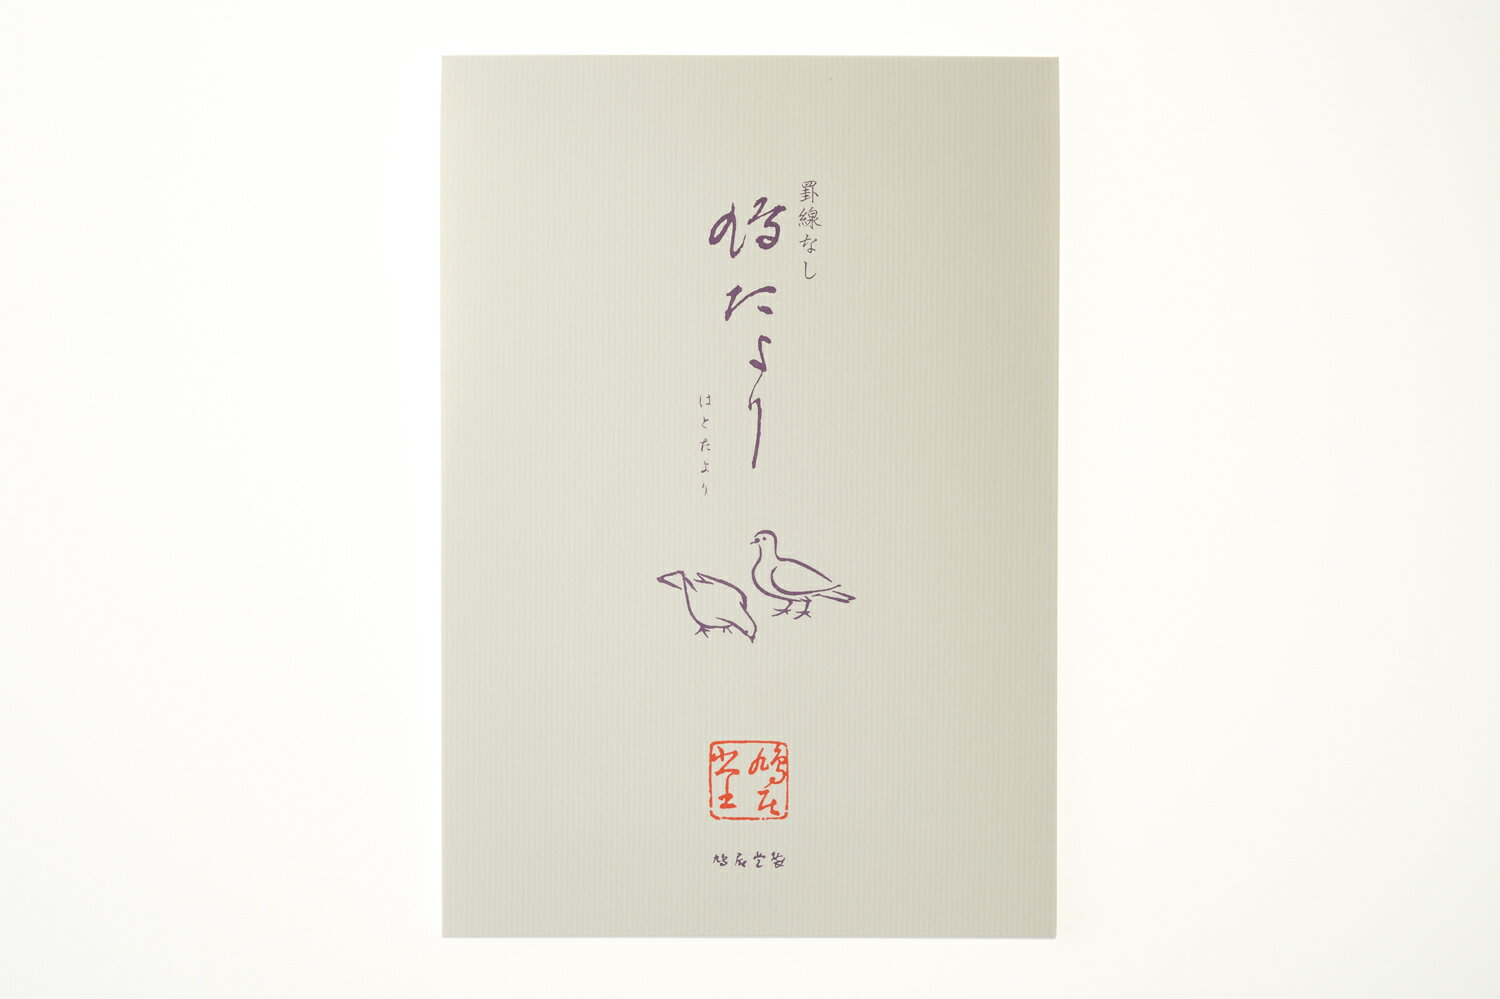 罫線なし
鳩たより
はとたより
鳩居堂
鳩居堂製